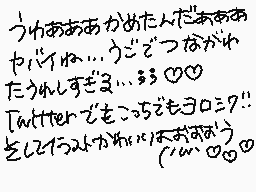 うわぁぁぁかめたんだぁぁぁ
ヤバイね...うごでつながれ
たうれしすぎる...;; ♡♡
Twitterでもこっちでもヨロシク!!
そしてイラストかわいいはおおおう
♡♡♡